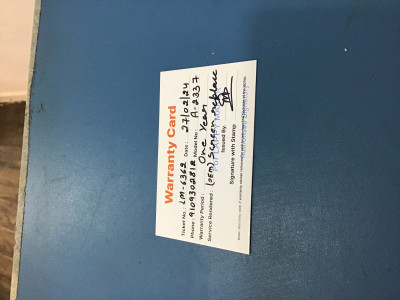 Warranty Card
Ticket No.: LM-6362 Date: 27/02/24
Phone: 9109302812 Model No.: A-2337
Warranty Period: One Year
Service Rendered: (OEM) Screen replace
Issued By.
Signature with Stamp